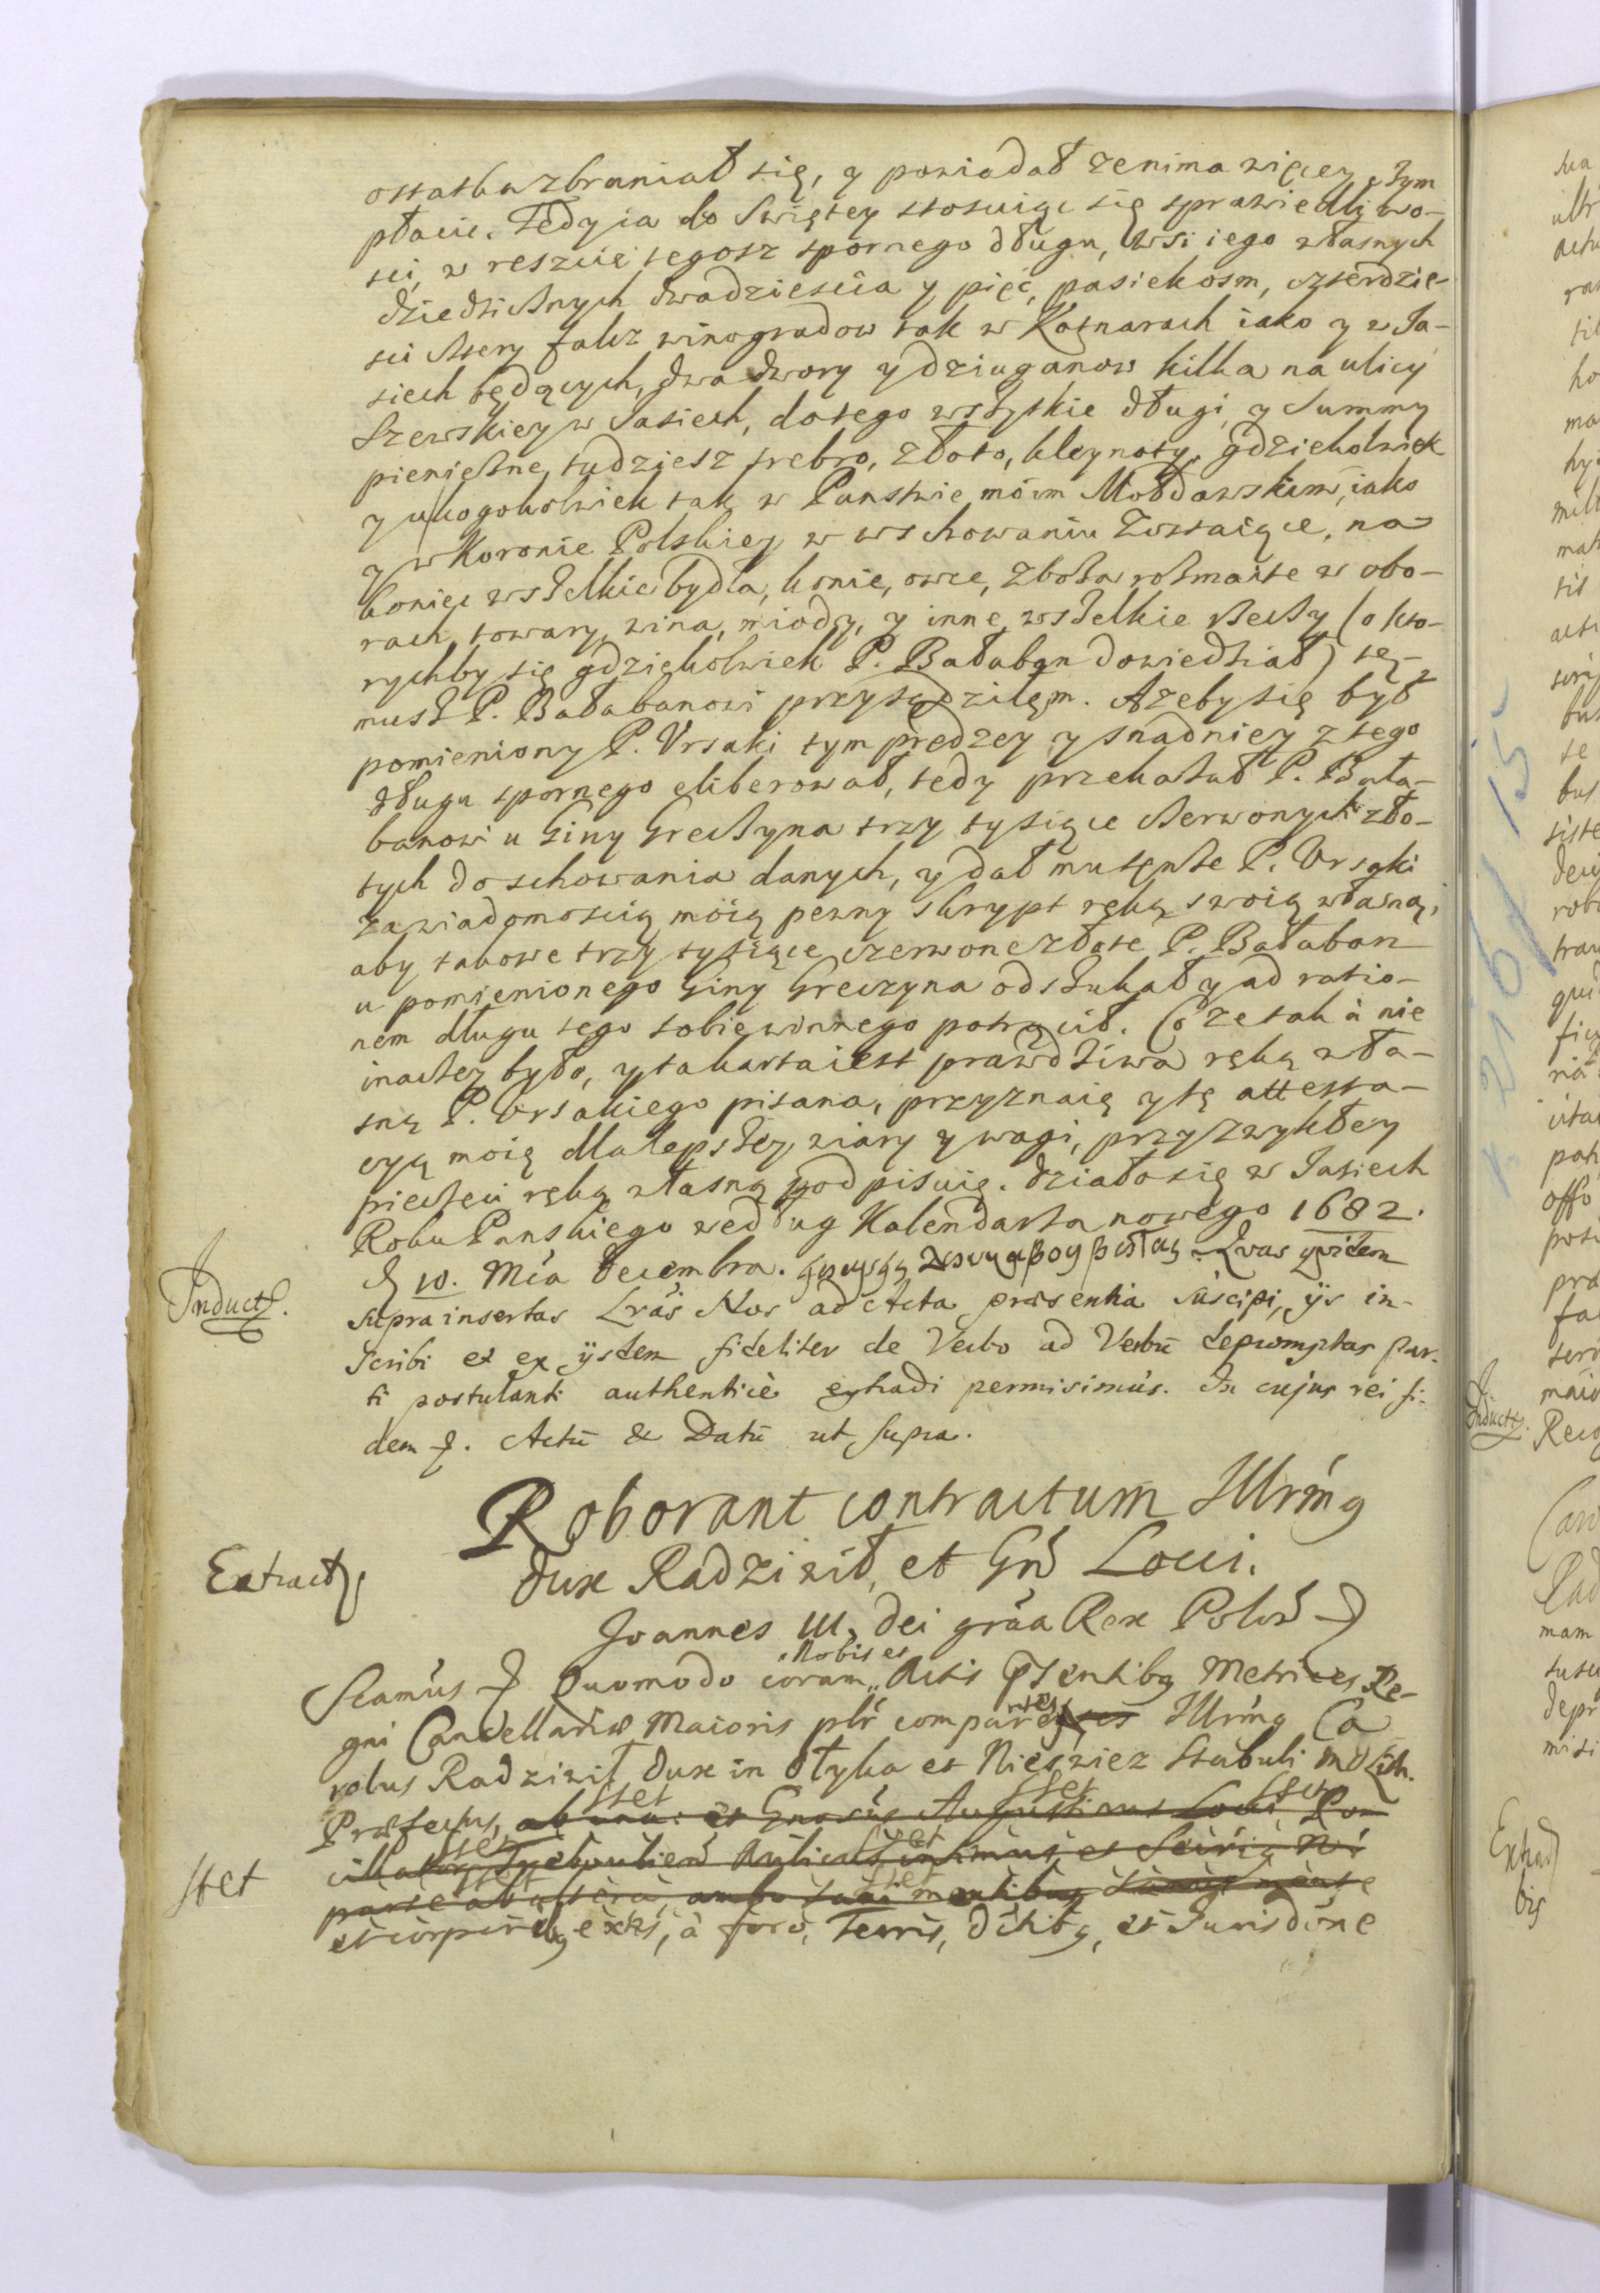 ostatka zbraniał się, y powiadał ze nima więcey czym
płacic. Tedy ia do Swiętey stosuiąc się sprawiedliwo-
sci, w reszcie tegosz spornego długu, wsi iego własnych
dziedzicznych dwadziescia y pięć, pasiek osm, czterdzie-
sci cztery falcz winogradow tak w Kotnarach iako y w Ja-
siech będących, dwa dwory y dziuganow kilka na ulicy
Szewskiey w Jasiech, do tego wszytkie długi, y Summy
pieniężne, tudziesz srebro, złoto, kleynoty, gdziekolwiek
y u kogokolwiek tak w Panstwie moim Mołdawskim, iako
y w Koronie Polskiey w uschowaniu zostaiące, na
koniec wszelkie bydła, konie, owce, zboża rozmaite w obo-
rach, towary, wina, miody, y inne wszelkie rzeczy (o kto-
rychby się gdziekolwiek P. Bałaban dowiedział) te-
musz P. Bałabanowi przysądziłęm. Azeby się był
pomieniony P. Vrsaki tym prędzey y snadniey z tego
długu spornego eliberował, tedy przekazał P. Bała-
banowi u Giny Greczyna trzy tysiące czerwonych zło-
tych do schowania danych, y dał mu tęnże P. Vrsaki
za wiadomoscią moią pewny skrypt ręką swoią własną,
aby takowe trzy tysiące czerwone złote P. Bałaban
u pomienionego Giny Greczyna odszukał y ad ratio-
nem długu tego sobie winnego potrącił. Co ze tak à nie
inaczey było, y ta karta iest prawdziwa ręką wła-
sną P. Vrsakiego pisana, przyznaię y tę attesta-
cyą moią dla lepszey wiary y wagi, przy zwykłey
pieczęci ręką własną podpisuię. Działo się w Jasiech
Roku Panskiego według Kalendarza nowego 1682.
D 10. Mca Decembra. Quas quidem
supra insertas Lrás Nos ad Acta præsentia súscipi, ijs in-
scribi et ex ijsdem fideliter de Verbo ad Verbū depromptas par-
ti postulanti authenticè extradi permisimús. In cujus rei fi-
dem &. Actū & Datū ut supra.
Induct.
Roborant contractum Illrmg
Dux Radziwił, et Gnd Loui.
Extract
Joannes III. Dei gráa Rex Polon &
Nobis et
Scamús & Quomodo coram Actis psentibg Metrices Re-
gni Cancellariæ Maioris plr comparentes Illrmg Ca
rolus Radziwił Dux in Ołyka et Nieswiez Stabuli MDLith.
stet stet stet
Præfectus, ab una: et Gnosus Augustinus
stet stet
stet
parte ab altera, ambo sani mentibg
et corporibg exnts, à foro, terris, dctibg, et Jurisdóne